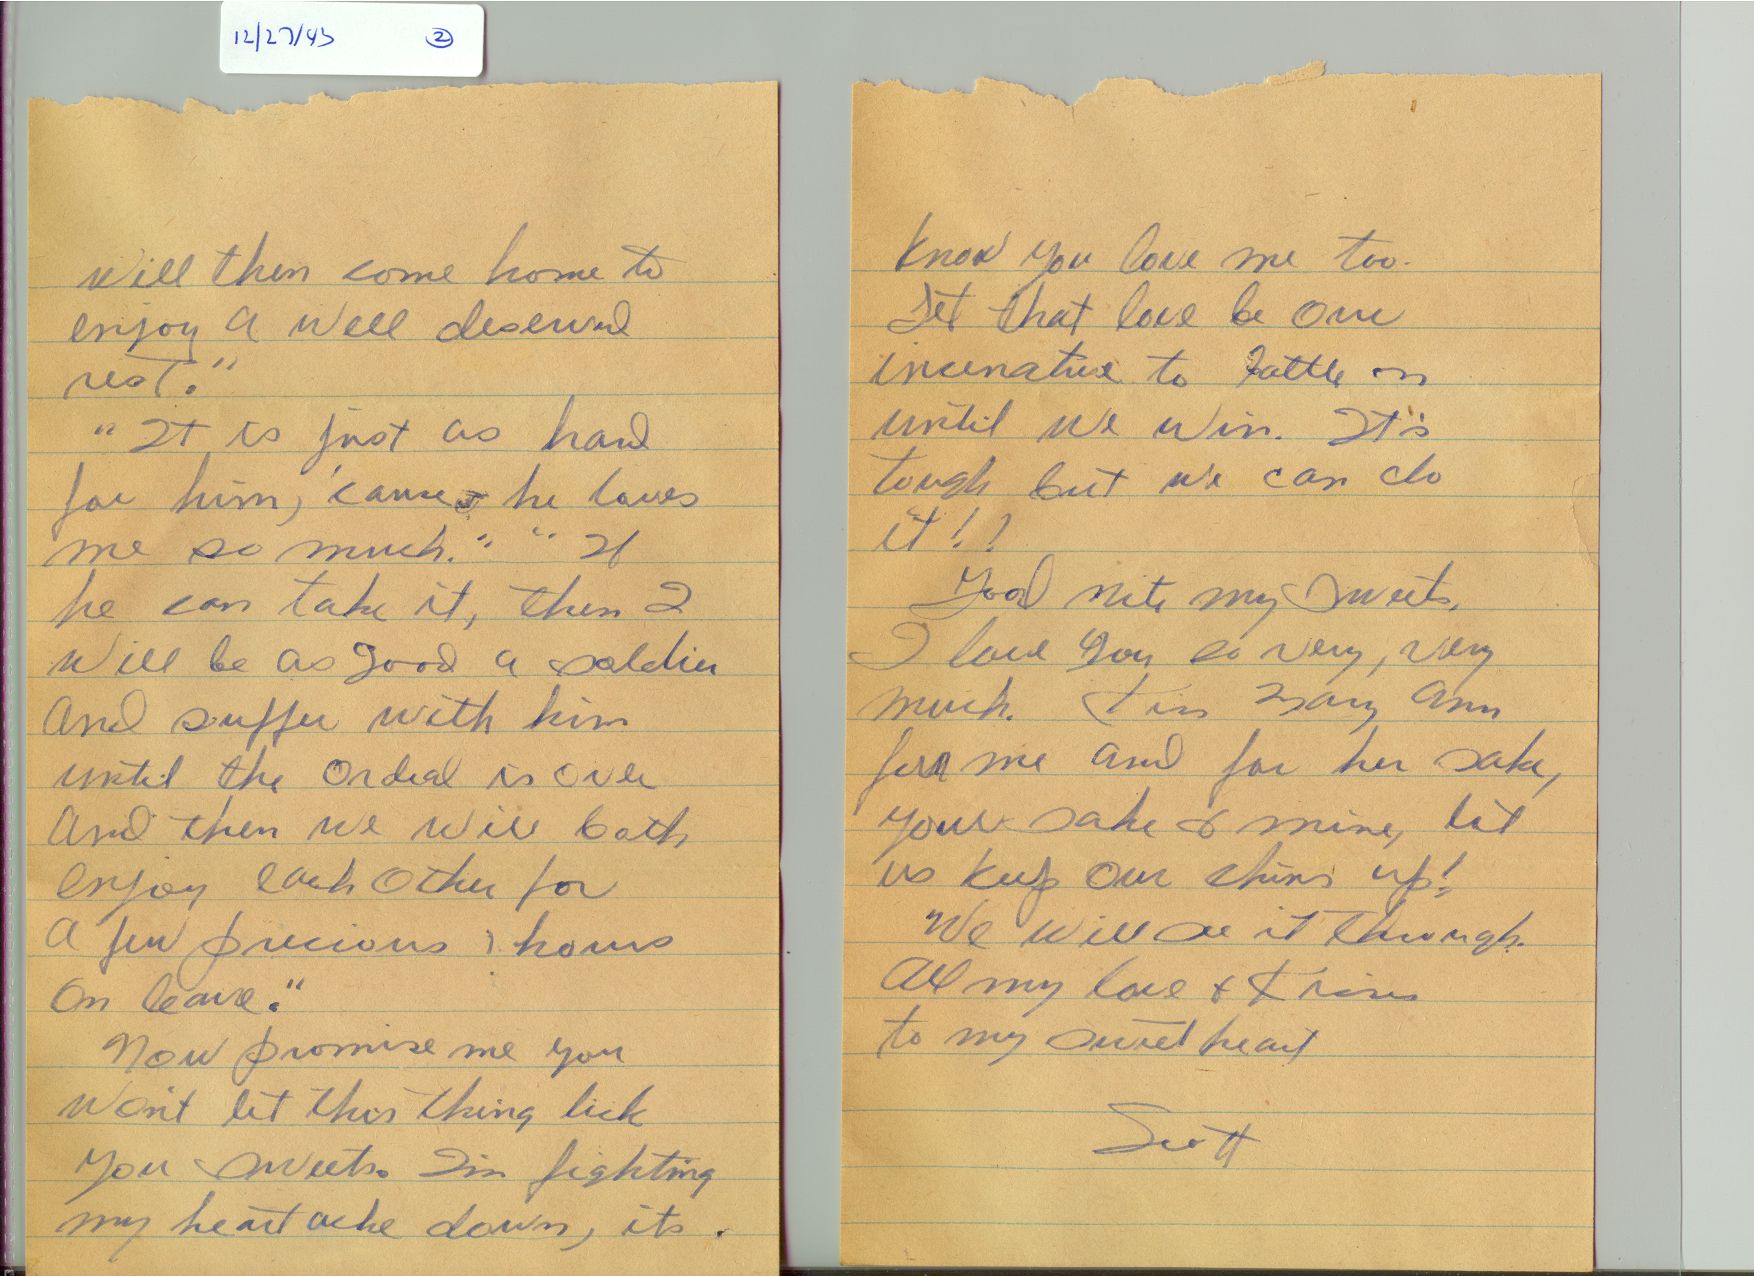 12/27/43 ②
will then come home to
enjoy a well deserved
rest."
"It is just as hard
for him, 'cause he loves
me so much." "If
he can take it, then I
will be as good a soldier
and suffer with him
until the ordeal is over
and then we will both
enjoy each other for
a few precious hours
on leave."
Now promise me you
won't let this thing lick
you sweets. I'm fighting
my heartache down, its
know you love me too.
Let that love be our
incenative to battle on
until we win. It's
tough but we can do
it!!
Good nite my sweets.
I love you so very, very
much. Kiss Mary Ann
for me and for her sake,
your sake & mine, let
us keep our chins up!
We will see it through.
All my love & kisses
to my sweetheart
Scott